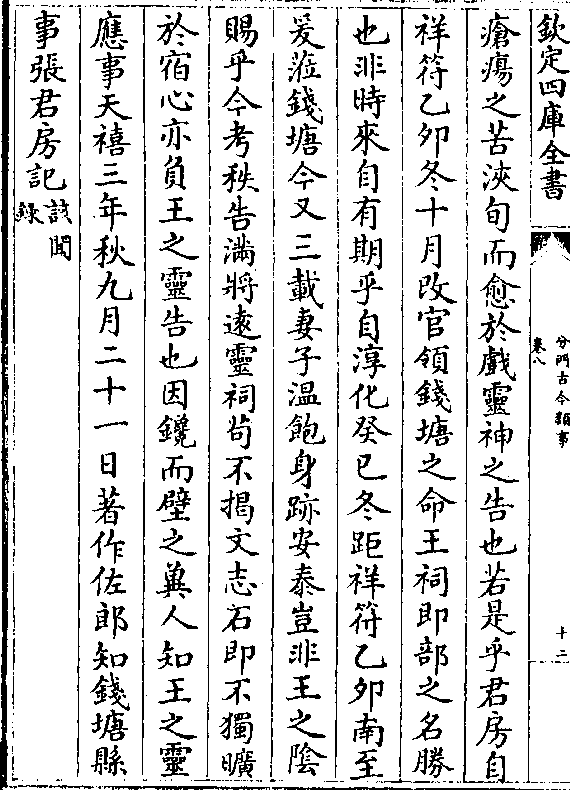 欽定四庫全書
分門古今類事
卷八
十三
瘡瘍之苦浹旬而愈於戲靈神之告也若是乎君房自
祥符乙卯冬十月改官領錢塘之命王祠即部之名勝
也非時來自有期乎自淳化癸巳冬距祥符乙卯南至
爰蒞錢塘今又三載妻子温飽身跡安泰豈非王之陰
賜乎今考秩告滿將遠靈祠茍不揭文志石即不獨曠
於宿心亦負王之靈告也因鑱而壁之冀人知王之靈
應事天禧三年秋九月二十一日著作佐郎知錢塘縣
事張君房記該聞錄